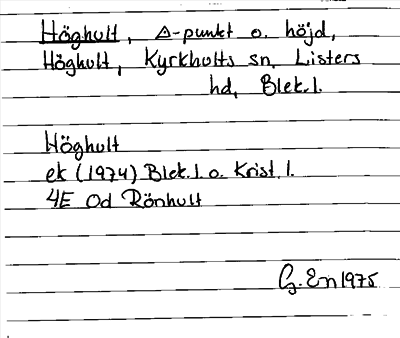 Höghult, △-punkt o. höjd,
Höghult, Kyrkhults sn, Listers
hd, Blek.l.
Höghult
ek (1974) Blek.l. o. Krist.l.
4E Od Rönhult
G. En 1975